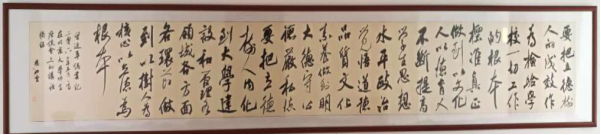 要把立德树
人的成效作
为检验学
校一切工作
的根本
标准真正
做到以文化
人以德育人
不断提高
学生思想
水平政治
觉悟道德
品质文化
素养做到明
大德守公
德严私德
要把立德
树人内化
到大学建
设和管理各
领域各方面
各环节做
到以树人为
核心以立德为
根本